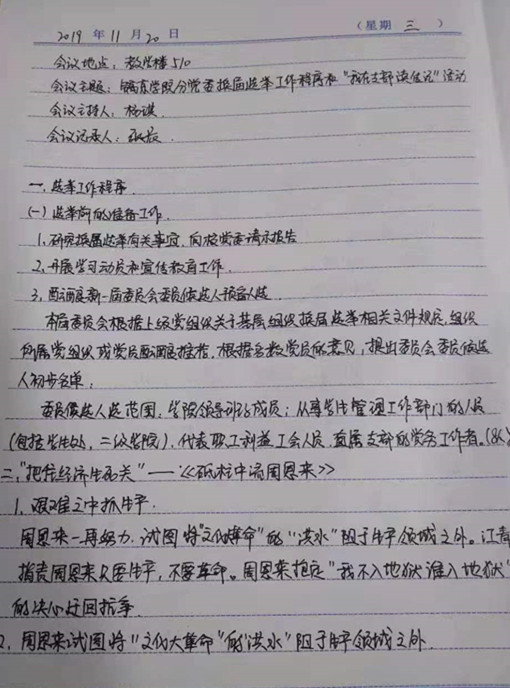 2019 年 11 月 20 日 （星期 三 ）
会议地点：教学楼510
会议主题：学院分党委换届选举工作程序和“我在支部读传记”活动
会议主持人：杨
会议记录人：
一、选举工作程序
(一)选举前的准备工作
1、研究换届选举有关事宜，向校党委请示报告
2、开展学习动员和宣传教育工作
3、酝酿新一届委员会委员候选人预备人选
本届委员会根据上级党组织关于基层组织换届选举相关文件规定，组织
所属党组织或党员酝酿推荐，根据多数党员的意见，提出委员会委员候选
人初步名单；
委员候选人选范围：学院领导班子成员；从事学生管理工作部门的人员
(包括学生处、二级学院)，代表职工利益工会人员，直属支部的党务工作者。
二、“把住经济生死关”——《砥柱中流周恩来》
1、艰难之中抓生产
周恩来一再努力，试图将“文化革命”的“洪水”阻于生产领域之外。江青
指责周恩来只要生产，不要革命。周恩来抱定“我不入地狱谁入地狱”
的决心迂回抗争
2、周恩来试图将“文化大革命”的“洪水”阻于生产领域之外